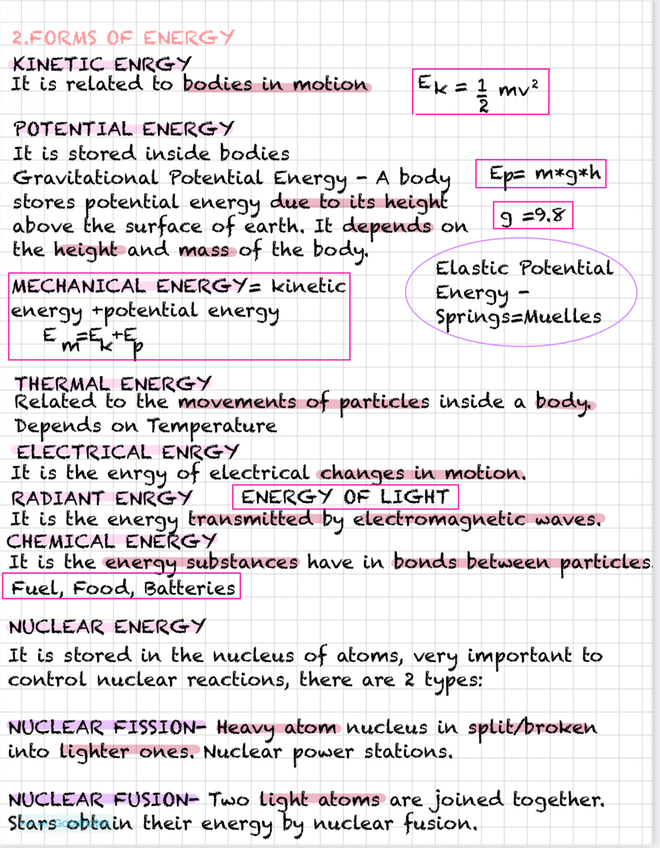 2.FORMS OF ENERGY
KINETIC ENRGY
It is related to bodies in motion
Ek = 1/2 mv²
POTENTIAL ENERGY
It is stored inside bodies
Gravitational Potential Energy - A body
stores potential energy due to its height
above the surface of earth. It depends on
the height and mass of the body.
Ep= m*g*h
g =9.8
Elastic Potential
Energy -
Springs=Muelles
MECHANICAL ENERGY= kinetic
energy +potential energy
Em=Ek+Ep
THERMAL ENERGY
Related to the movements of particles inside a body.
Depends on Temperature
ELECTRICAL ENRGY
It is the enrgy of electrical changes in motion.
RADIANT ENRGY
ENERGY OF LIGHT
It is the energy transmitted by electromagnetic waves.
CHEMICAL ENERGY
It is the energy substances have in bonds between particles.
Fuel, Food, Batteries
NUCLEAR ENERGY
It is stored in the nucleus of atoms, very important to
control nuclear reactions, there are 2 types:
NUCLEAR FISSION- Heavy atom nucleus in split/broken
into lighter ones. Nuclear power stations.
NUCLEAR FUSION- Two light atoms are joined together.
Stars obtain their energy by nuclear fusion.